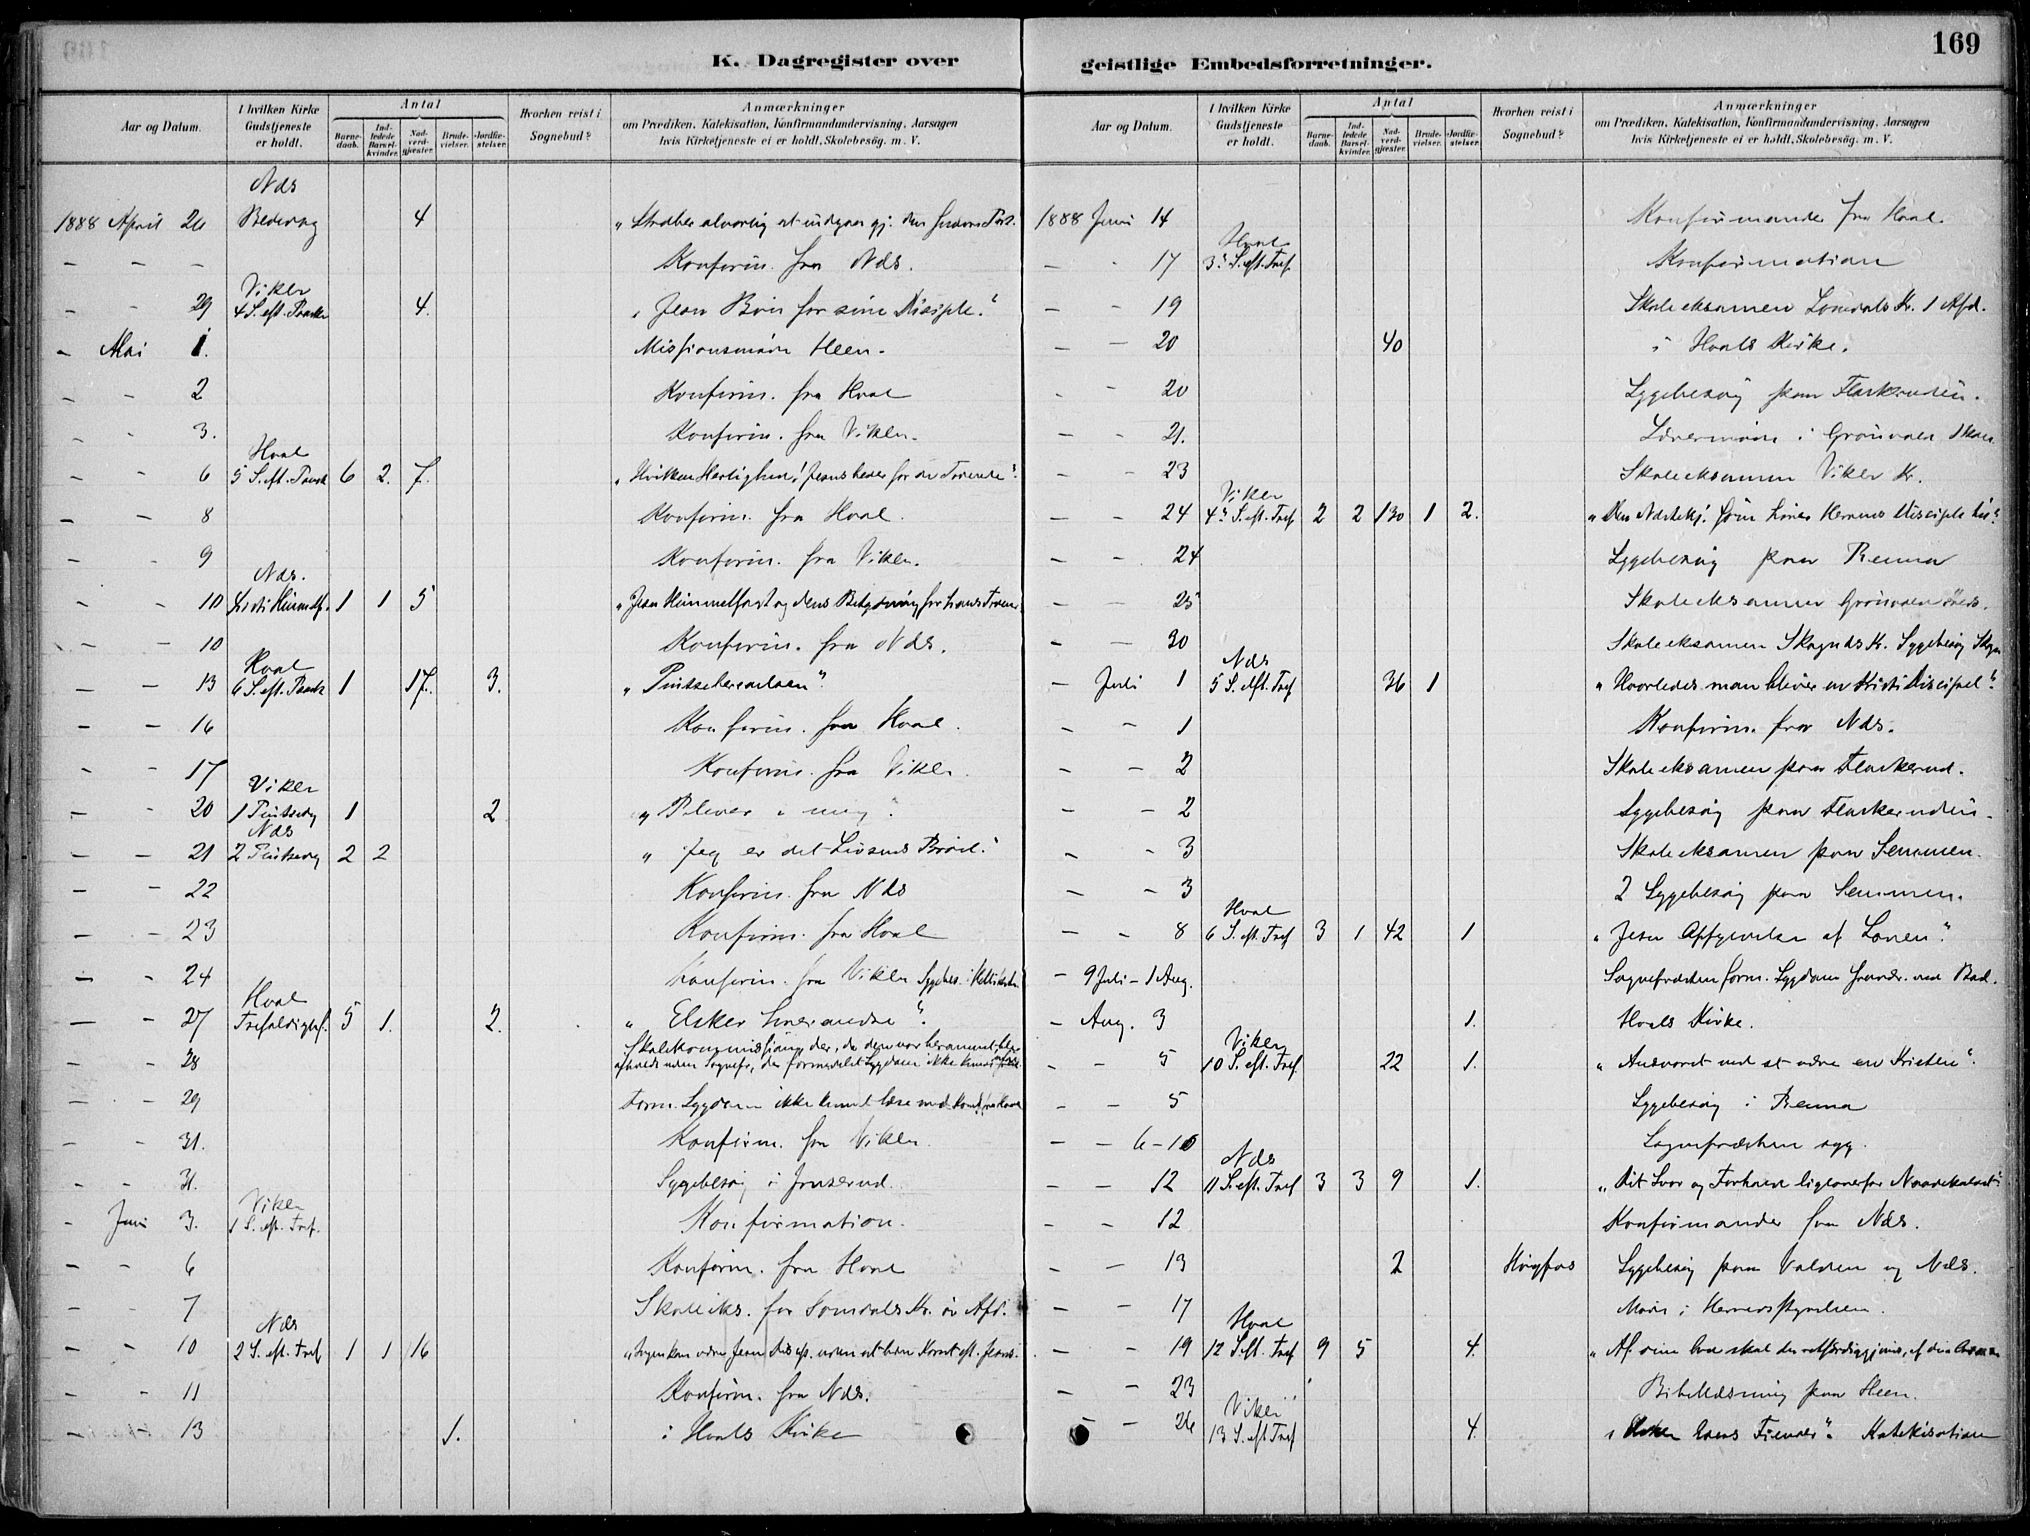 169
K. Dagregister over geistlige Embedsforretninger.
Aar og Datum.
I hvilken Kirke Gudstjeneste er holdt.
Antal
Barne-daab.
Ind-ledede Barsel-kvinder.
Nad-verd-gjester.
Brude-vielser.
Jordfæ-stelser.
Hvorhen reist i Sognebud?
Anmærkninger
om Prædiken, Katekisation, Konfirmandundervisning, Aarsagen
hvis Kirketjeneste ei er holdt, Skolebesøg. m. V.
1888 April 26 Næs Bededag 4
- - - Konfirm. fra Næs.
- - 29 Viker 4 S. eft. Paaske 4. Jesu Bøn for sine Disciple."
- Mai 1. Missionsmøde Heen.
- - 2 Konfirm. fra Hval
- - 3. Konfirm. fra Viker.
- - 6 Hval 5 S. eft. Paask 6 2. 7. "Hvilken Herlighed Jesus beder for de Troende"
- - 8 Konfirm. fra Hval.
- - 9 Konfirm. fra Viker.
- - 10 Næs. Kristi Himmelf. 1 1 5 "Jesu Himmelfart og dens Betydning for hans Troende
- - 10 Konfirm. fra Næs.
- - 13 Hval 6 S. eft. Paask 1 17. 3. "Pintseberedelsen"
- - 16 Konfirm. fra Hval.
- - 17 Konfirm. fra Viker.
- - 20 Viker 1 Pintsedag 1 2 "Bliver i mig"
- - 21 Næs 2 Pintsedag 2 2 "Jeg er det Livsens Brød."
- - 22 Konfirm. fra Næs
- - 23 Konfirm. fra Hval
- - 24 Konfirm. fra Viker
- - 27 Hval Trefoldighf. 5 1. 2. "Elsker hverandre"
- - 28 Skolekommissjon
- - 29 Form. Sygdom ikke kunnet læse med Konf. fra Hval
- - 31. Konfirm. fra Viker.
- - 31. Sygebesøg i
- Juni 3. Viker 1 S. eft. Tref. Konfirmation.
- - 6 Konfirm. fra Hval
- - 7 Skoleeks. for Somdals Kr. Afd.
- - 10 Næs 2 S. eft. Tref 1 1 16
- - 11 Konfirm. fra Næs.
- - 13 1. i Hvals Kirke
Aar og Datum.
I hvilken Kirke Gudstjeneste er holdt.
Antal
Barne-daab.
Ind-ledede Barsel-kvinder.
Nad-verd-gjester.
Brude-vielser.
Jordfæ-stelser.
Hvorhen reist i Sognebud?
Anmærkninger
om Prædiken, Katekisation, Konfirmandundervisning, Aarsagen
hvis Kirketjeneste ei er holdt, Skolebesøg. m. V.
1888 Juni 14 Konfirmander fra Hval.
- - 17 Hval 3. S. eft. Tref. Konfirmation
- - 19 Skoleeksamen Somdals Kr. 1 Afd.
- - 20 40 i Hvals Kirke.
- - 20 Sygebesøg paa Flaskerudein.
- - 21. Lærermøde i Grønvolds Skole
- - 23 Skoleeksamen Viker Kr.
- - 24 Viker 4. S. eft. Tref 2 2 130 1 2.
- - 24 Sygebesøg paa Renna
- - 25 Skoleeksamen
- - 30 Skoleeksamen Skagnæs Kr. Sygebesøg
- Juli 1 Næs 5 S. eft. Tref 36 1 "Hvorledes man bliver en Kristi Discipel"
- - 1 Konfirm. fra Næs.
- - 2 Skoleeksamen paa Flaskerud.
- - 2 Sygebesøg paa Flaskerudein.
- - 3 Skoleeksamen paa Semmen.
- - 3 2 Sygebesøg paa Semmen.
- - 8 Hval 6 S. eft. Tref 3 1 42 1 "Jesu Opfyldelse af Loven."
- 9 Juli - 1 Aug. Sognepræsten form. Sygdom fravær. ved Bad.
- Aug. 3 1. Hvals Kirke.
- - 5 Viker 10 S. eft. Tref. 22 1. "Ansvaret ved at være en Kristen"
- - 5 Sygebesøg i Renna
- - 6-10 Sognepræsten syg.
- - 12 Næs 11 S. eft. Tref 3 3 9 1.
- - 12 Konfirmander fra Næs.
- - 13 2 Høgfos Sygebesøg paa Valdren og Næs.
- - 17 Møde i Herredsstyrelsen.
- - 19 Hval 12 S. eft. Tref 9 5 4.
- - 23 Bibellæsning paa Heen.
- - 26 Viker 13 S. eft Tref 4. Elsker Eders Fiender" Katekisation